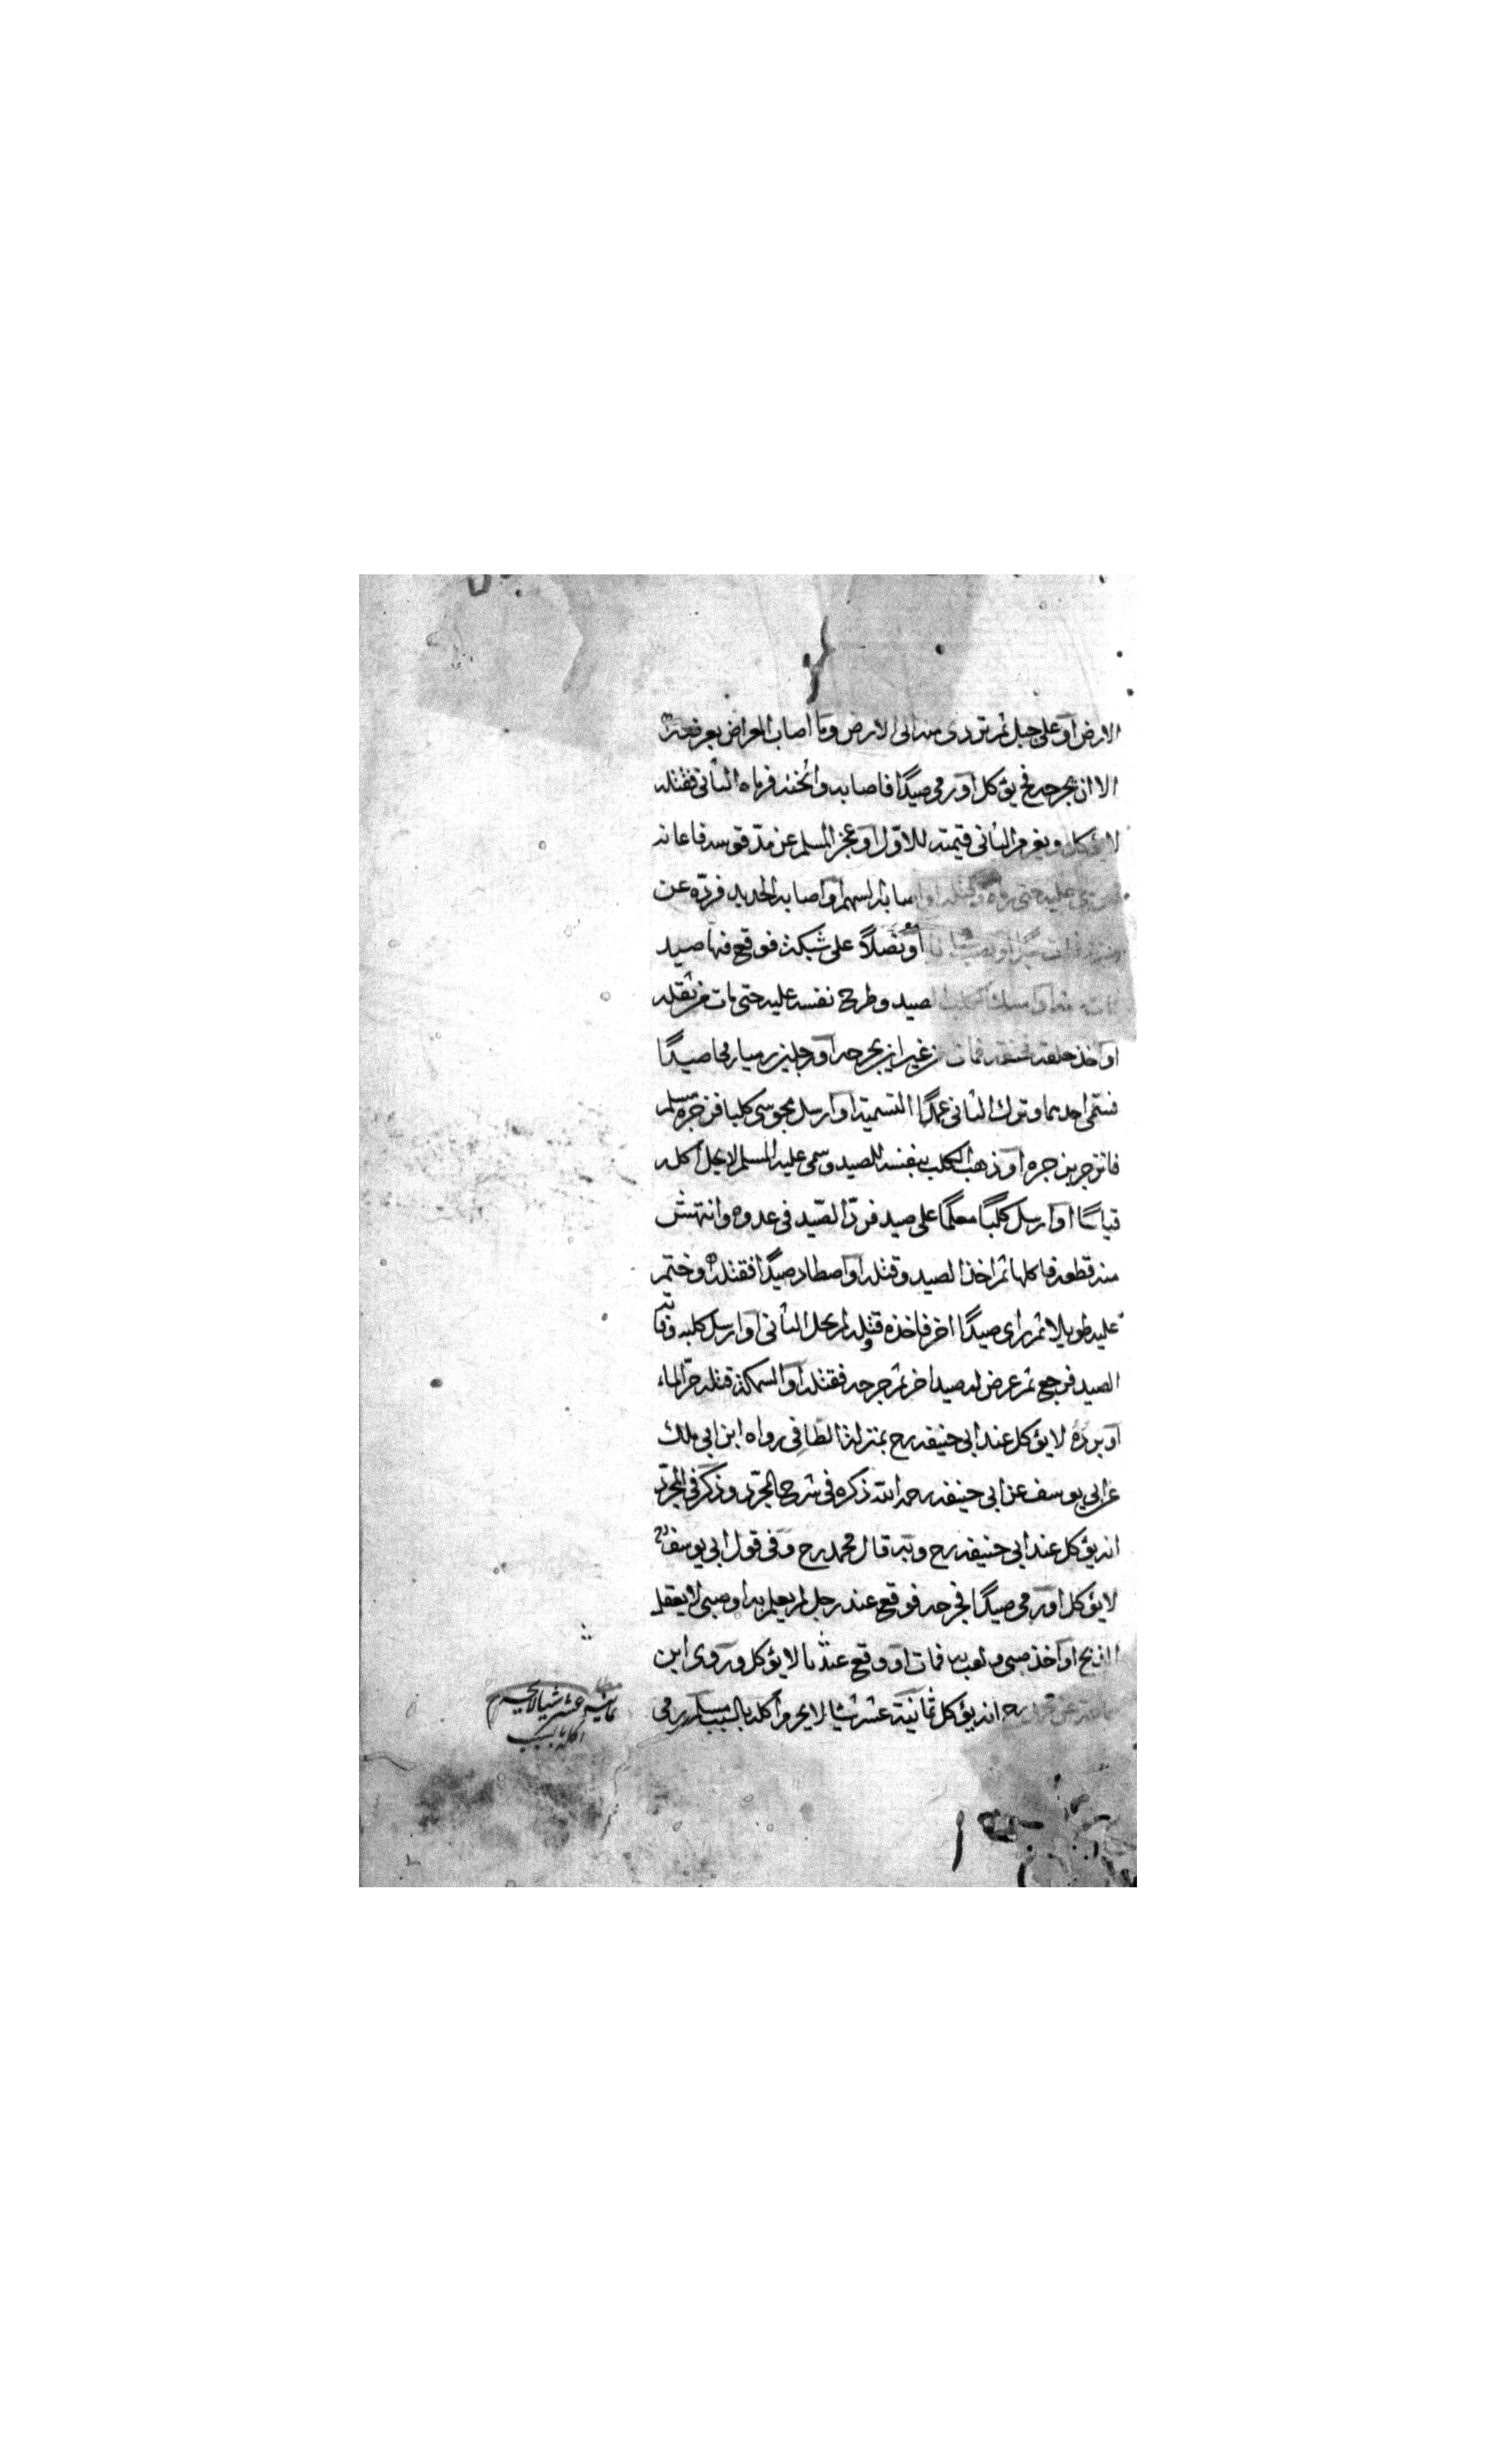 الارض او على جبل ثم تردى منه الى الارض وما اصاب المعراض بعرضه
الا ان يجرحه فح يؤكل او رمى صيدًا فاصابه واثخنه فرماه الثاني فقتله
لا يؤكل ويغرم الثاني قيمته للاوّل او عجز المسلم عن مدّ قوسه فاعانه
عليه حتى رماه اصابه السهم او اصابه الحديد فردّه عن
او نصلاً على شبكة فوقع فيها صيد
الصيد وطرح نفسه عليه حتى مات من ثقله
او اخذ حلقه فخنقه فمات من غير ان يجرحه او رجلين رميا رميا صيدًا
فسمّى احدهما وترك الثاني عمدًا التسمية او ارسل مجوسي كلبا فزجره مسلم
فانزجر بزجره او ذهب الكلب بنفسه للصيد وسمى عليه المسلم لا يحل اكله
قياسًا او ارسل كلبًا معلمًا على صيد فردّ الصّيد في عدوه وانتهش
منه قطعة فاكلها ثم اخذ الصيد وقتله او اصطاد صيدًا فقتله وختم
عليه طويلا ثم راى صيدًا اخر فاخذه وقتله لم يحل الثاني او ارسل كلبه وفاته
الصيد فرجع ثم عرض له صيد اخر ثم جرحه فقتله او السمكة قتله حرّ الماء
او برده لا يؤكل عند ابي حنيفة رح بمنزلة الطافي رواه ابن ابي ملك
عن ابي يوسف عن ابي حنيفة رحمه الله ذكره في شرح المجرّد وذكر في المجرّد
انه يؤكل عند ابي حنيفة رح وبه قال محمد رح وفي قول ابي يوسف رح
لا يؤكل او رمى صيدًا فجرحه فوقع عند رجل لم يعلم به او صبى لا يعقل
الذبح او اخذ صبى ولعب به فمات او وقع عند لا يؤكل وروى ابن
عن رح انه يؤكل ثمانية عشر شيئا لا يحرم اكله بالسبب مسلم رمى
ثمانية عشر شيئا لا يحرم
اكله بالسبب